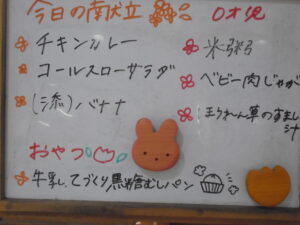 今日の献立
チキンカレー
コールスローサラダ
(添)バナナ
おやつ
牛乳、てづくり黒糖むしパン
0才児
米粥
ベビー肉じゃが
ほうれん草のすまし汁